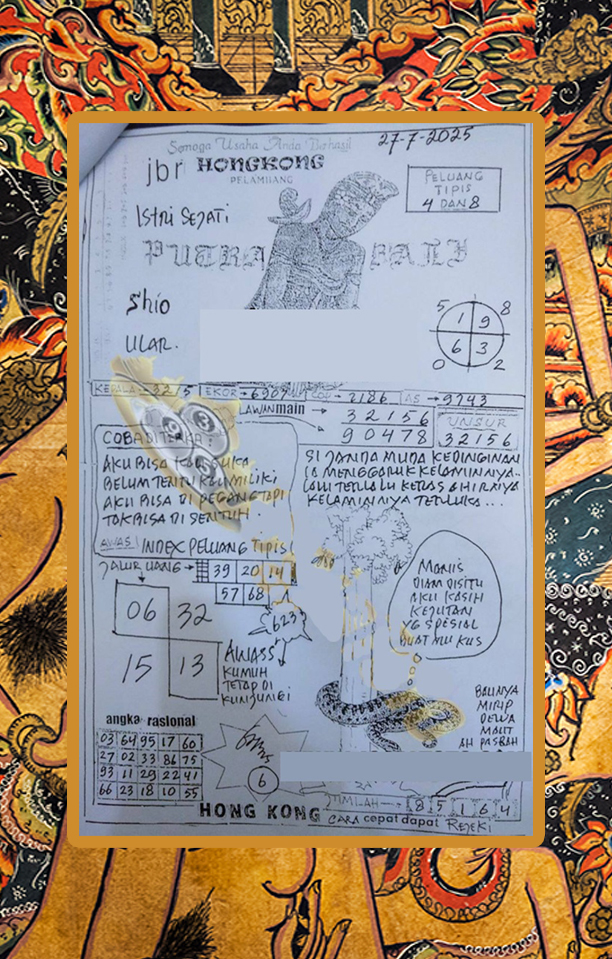 Semoga Usaha Anda Behasil
27-7-2025
jbr HONGKONG
PELAMIIANG
PELUANG
TIPIS
4 DAN 8
ISTRI SEJATI
PUTRA BALI
Shio
ULAR.
5 8
1 9
6 3
0 2
KEPALA → 3215 EKOR → 6907 COP → 2186 AS → 9743
LAWAN main → 32156
90478
UNSUR
32156
COBA DITERKA:
AKU BISA
BELUM TENTU KAU MILIKI
AKU BISA DI PEGANG TAPI
TAK BISA DI SENTUH.
SI JANDA MUDA KEDINGINAN
IA MENGGARUK KELAMINNYA..
LALU TERLALU KERAS AHIRNYA
KELAMINNYA TERLUKA...
AWAS! INDEX PELUANG TIPIS!
JALUR UANG → 39 20 14
57 68
623
06 32
15 13
AWASS
KUMUH
TETAP DI
KUNJUNGI
MANIS
DIAM DISITU
AKU KASIH
KEJUTAN
YG SPESIAL
BUAT ALU KUS
BAUNYA
MIRIP
DEWA
MAUT
angka rasional
03 64 95 17 60
27 02 33 86 75
93 11 29 22 41
66 23 18 10 55
6
HONG KONG
JIMLAH → 8 5 1 6 4
CARA cepat dapat REJEKI